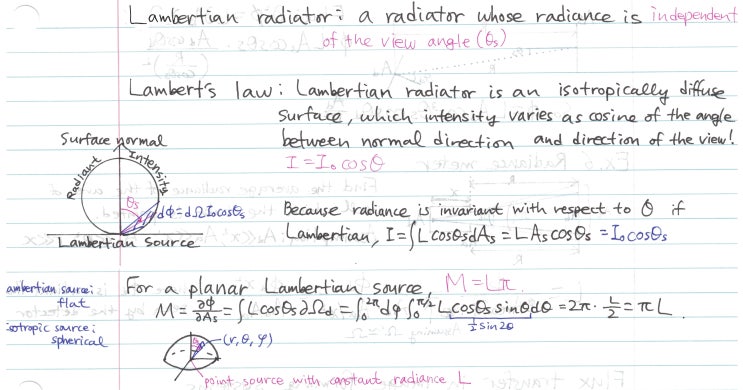 Lambertian radiator: a radiator whose radiance is independent
of the view angle (θs)
Lambert's law: Lambertian radiator is an isotropically diffuse
surface, which intensity varies as cosine of the angle
between normal direction and direction of the view!
I = I₀ cosθ
Surface normal
Radiant Intensity
θs
dϕ = dΩ I₀ cosθs
Lambertian Source
Because radiance is invariant with respect to θ if
Lambertian, I = ∫ L cosθs dAs = L As cosθs = I₀ cosθs
ambertian source:
flat
isotropic source:
spherical
For a planar Lambertian source, M = Lπ.
M = ∂ϕ/∂As = ∫ L cosθs ∂Ωd = ∫₀^2π dφ ∫₀^π/2 L cosθs sinθ dθ = 2π · L/2 = πL.
½ sin2θ
(r, θ, φ)
point source with constant radiance, L